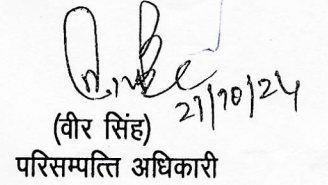 21/10/24
(वीर सिंह)
परिसम्पत्ति अधिकारी